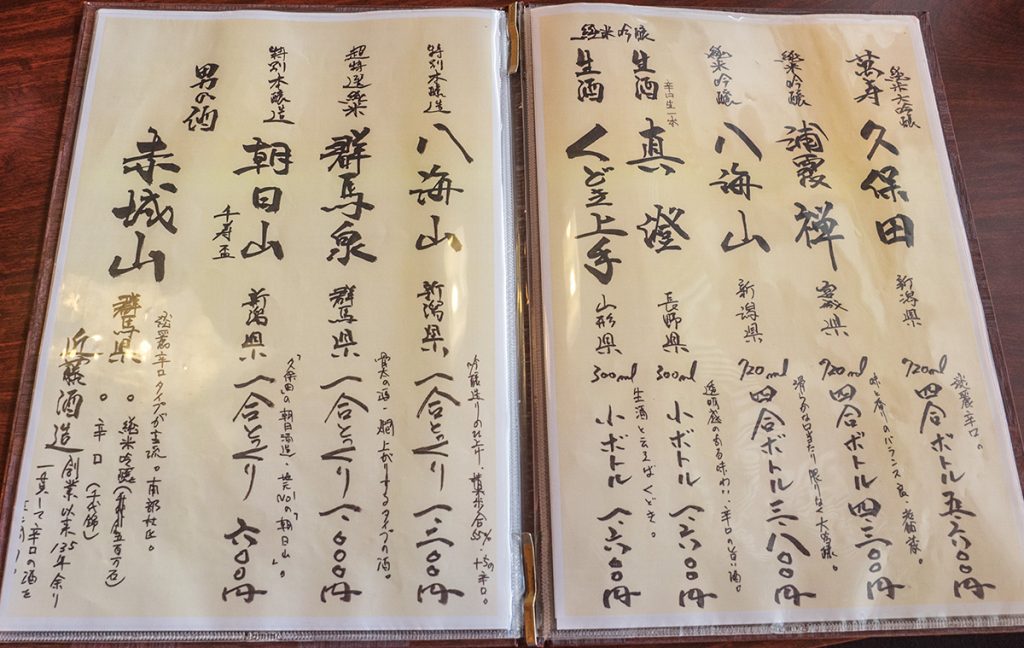 純米大吟醸
萬寿 久保田 新潟県 720ml 四合ボトル 五、六〇〇円
淡麗辛口。
純米吟醸 浦霞 禅 宮城県 720ml 四合ボトル 四、三〇〇円
味と香りのバランス良
純米吟醸 八海山 新潟県 720ml 四合ボトル 三、八〇〇円
滑らかな口あたり 限りなく大吟醸。
生酒 真澄 長野県 300ml 小ボトル 一、六〇〇円
辛口生一本
透明感のある味わい、辛口の旨い酒。
純米吟醸
生酒 くどき上手 山形県 300ml 小ボトル 一、六〇〇円
生酒と云えばくどき。
特別本醸造 八海山 新潟県 一合とっくり 一、三〇〇円
吟醸造りの仕上り、精米歩合55%、+5の辛口。
超特選純米 群馬泉 群馬県 一合とっくり 一、〇〇〇円
骨太の酒、燗上がりするタイプの酒。
特別本醸造 朝日山 新潟県 一合とっくり 六〇〇円
千寿盃
「久保田の朝日酒造・地元No1の「朝日山」。
男の酒
赤城山 群馬県
淡麗辛口タイプが主流。南部杜氏。
○ 純米吟醸
○ 辛口
近藤酒造 創業以来135年余り
一貫して辛口の酒を